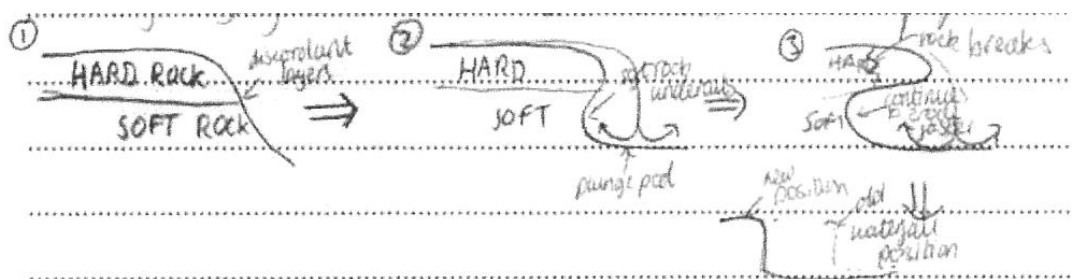 ①
HARD Rock
SOFT Rock
discordant
layers
②
HARD
SOFT
soft rock
undercuts
plunge pool
③
HARD
rock breaks
SOFT
continues
to erode
faster
new
position
old
waterfall
position